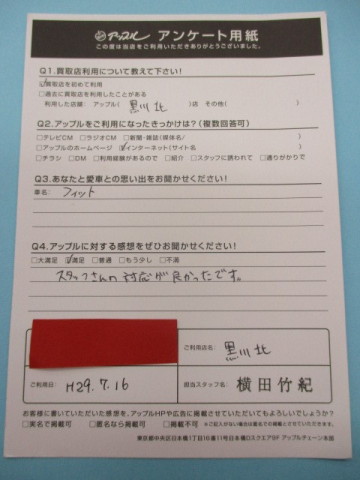 アップル アンケート用紙
この度は当店をご利用いただきありがとうございました。
Q1.買取店利用について教えて下さい!
☑買取店を初めて利用
□過去に買取店を利用したことがある
利用した店舗： アップル( 黒川北 )店 その他( )
Q2.アップルをご利用になったきっかけは?(複数回答可)
□テレビCM □ラジオCM □新聞・雑誌(媒体名/ )
□アップルのホームページ ☑インターネット(サイト名 )
□チラシ □DM □利用経験があるので □紹介 □スタッフに誘われて □通りがかりで
Q3.あなたと愛車との思い出をお聞かせください!
車名： フィット
Q4.アップルに対する感想をぜひお聞かせください!
□大満足 ☑満足 □普通 □もう少し □不満
スタッフさんの対応が良かったです。
ご利用店名： 黒川北
ご利用日： H29.7.16
担当スタッフ名： 横田竹紀
お客様に書いていただいた感想を、アップルHPや広告に掲載させていただいてもよろしいでしょうか?
□実名で掲載可 □匿名なら掲載可 □掲載不可 ※ご記入がない場合は匿名で掲載とさせていただきます。
東京都中央区日本橋1丁目16番11号日本橋Dスクエア5F アップルチェーン本部